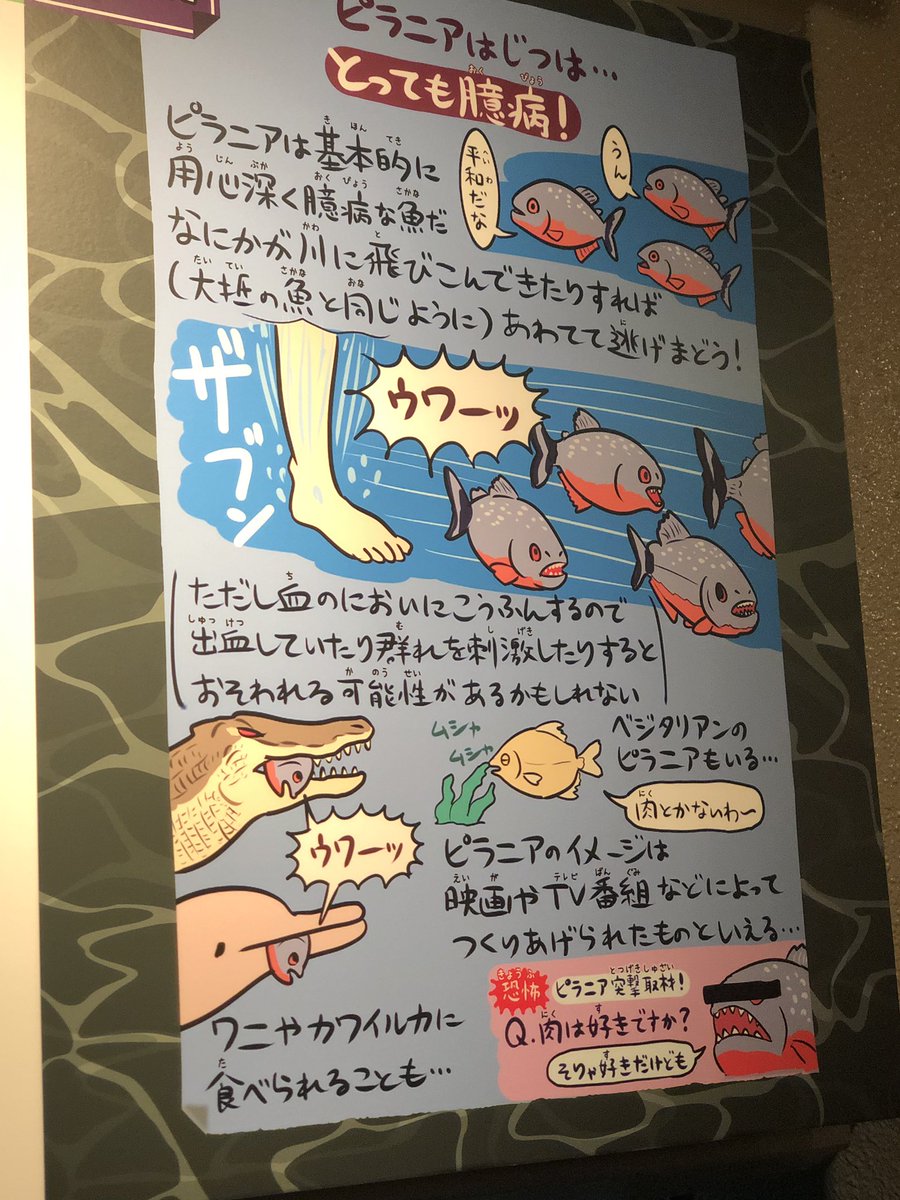 ピラニアはじつは…
とっても臆病!
ピラニアは基本的に
用心深く臆病な魚だ
平和だな
うん
なにかが川に飛びこんできたりすれば
(大抵の魚と同じように)あわてて逃げまどう!
ザブン
ウワーッ
ただし血のにおいにこうふんするので
出血していたり群れを刺激したりすると
おそわれる可能性があるかもしれない
ムシャ
ムシャ
ベジタリアンの
ピラニアもいる…
肉とかないわ〜
ウワーッ
ピラニアのイメージは
映画やTV番組などによって
つくりあげられたものといえる…
ワニやカワイルカに
食べられることも…
恐怖
ピラニア突撃取材!
Q.肉は好きですか?
そりゃ好きだけども